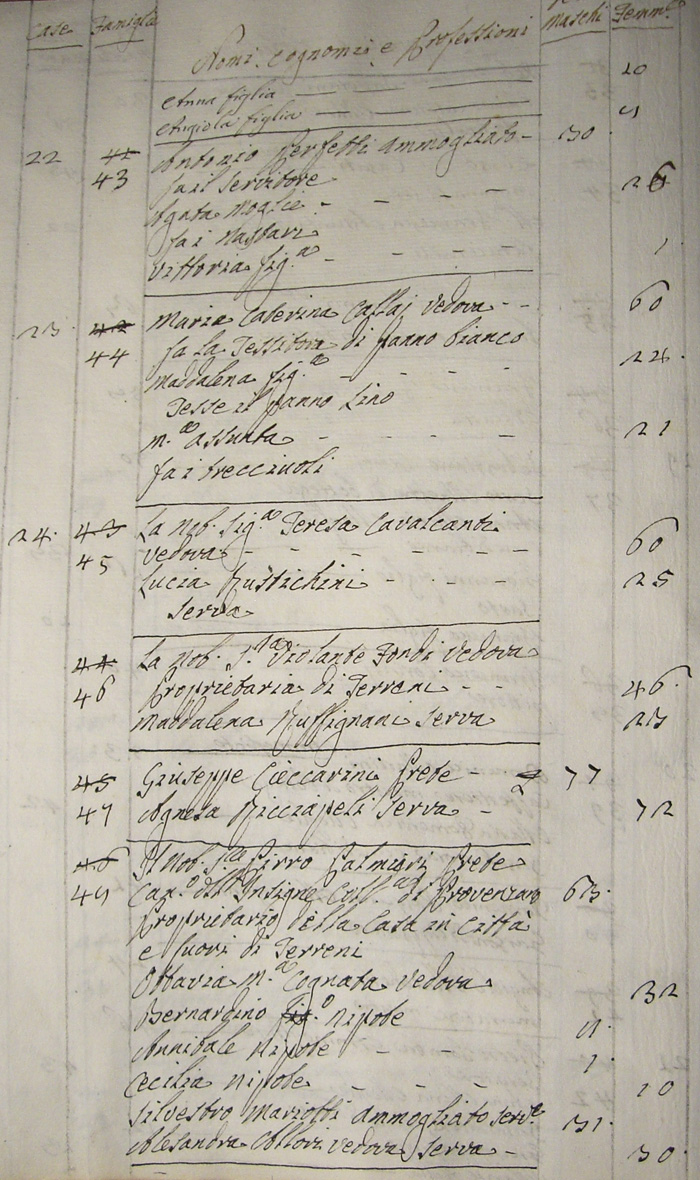 Case Famiglie Nomi, Cognomi, e Professioni Maschi Femm.e
Anna figlia — — — 10
Angiola figlia — — — 4
22 41 Antonio Perfetti ammogliato - 30
43 fa il Servitore
Agata Moglie - - - - 26
fa i Nastari
Vittoria fig.a - - - - 1
23 42 Maria Caterina Callaj Vedova - - 60
44 fa la Tessitora di panno bianco
Maddalena fig.a - - - - 24
Tesse il panno Lino
M.a Assunta - - - - 21
fa i trecciuoli
24 43 La Nob. Sig.a Teresa Cavalcanti
45 Vedova - - - - - 60
Lucia Rustichini - - - - 25
Serva
44 La Nob. S.ra Violante Fondi Vedova
46 Proprietaria di Terreni - - 46
Maddalena Ruffignani Serva 23
45 Giuseppe Ceccarini Prete - 77
47 Agnesa Ricciapeli Serva - 72
46 Il Nob. Pirro Palmieri Prete
Can.o dell' Insigne Coll.a di Provenzano 63
Proprietario della Casa in Città
e fuori di Terreni
Ottavia M.a Cognata Vedova 32
Bernardino fig.o Nipote
Annibale Nipote - -
Cecilia Nipote - - - 10
Silvestro Mariotti ammogliato serv.e 31
Alesandra Vedova Serva - 30